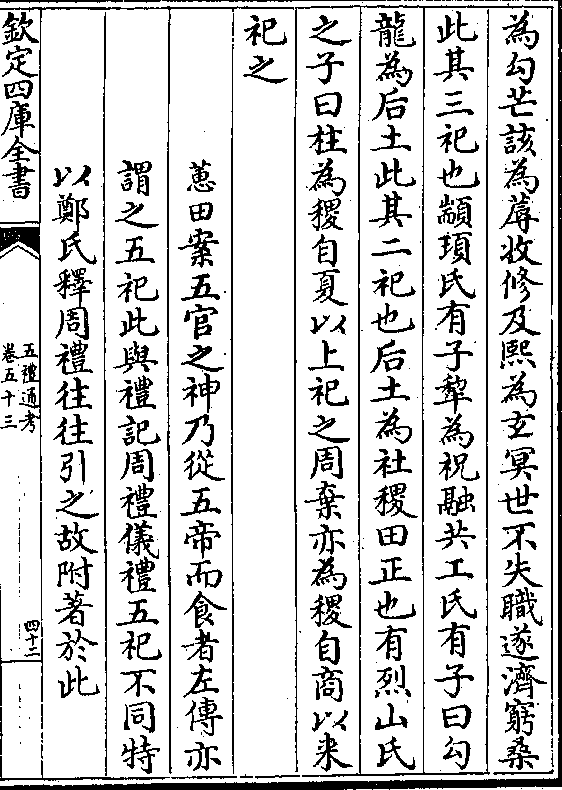 為勾芒該為蓐收修及熙為玄冥世不失職遂濟窮桑
此其三祀也顓頊氏有子犂為祝融共工氏有子曰勾
龍為后土此其二祀也后土為社稷田正也有烈山氏
之子曰柱為稷自夏以上祀之周棄亦為稷自商以来
祀之
蕙田案五官之神乃從五帝而食者左傳亦
謂之五祀此與禮記周禮儀禮五祀不同特
以鄭氏釋周禮往往引之故附著於此
欽定四庫全書
五禮通考
卷五十三
四十二